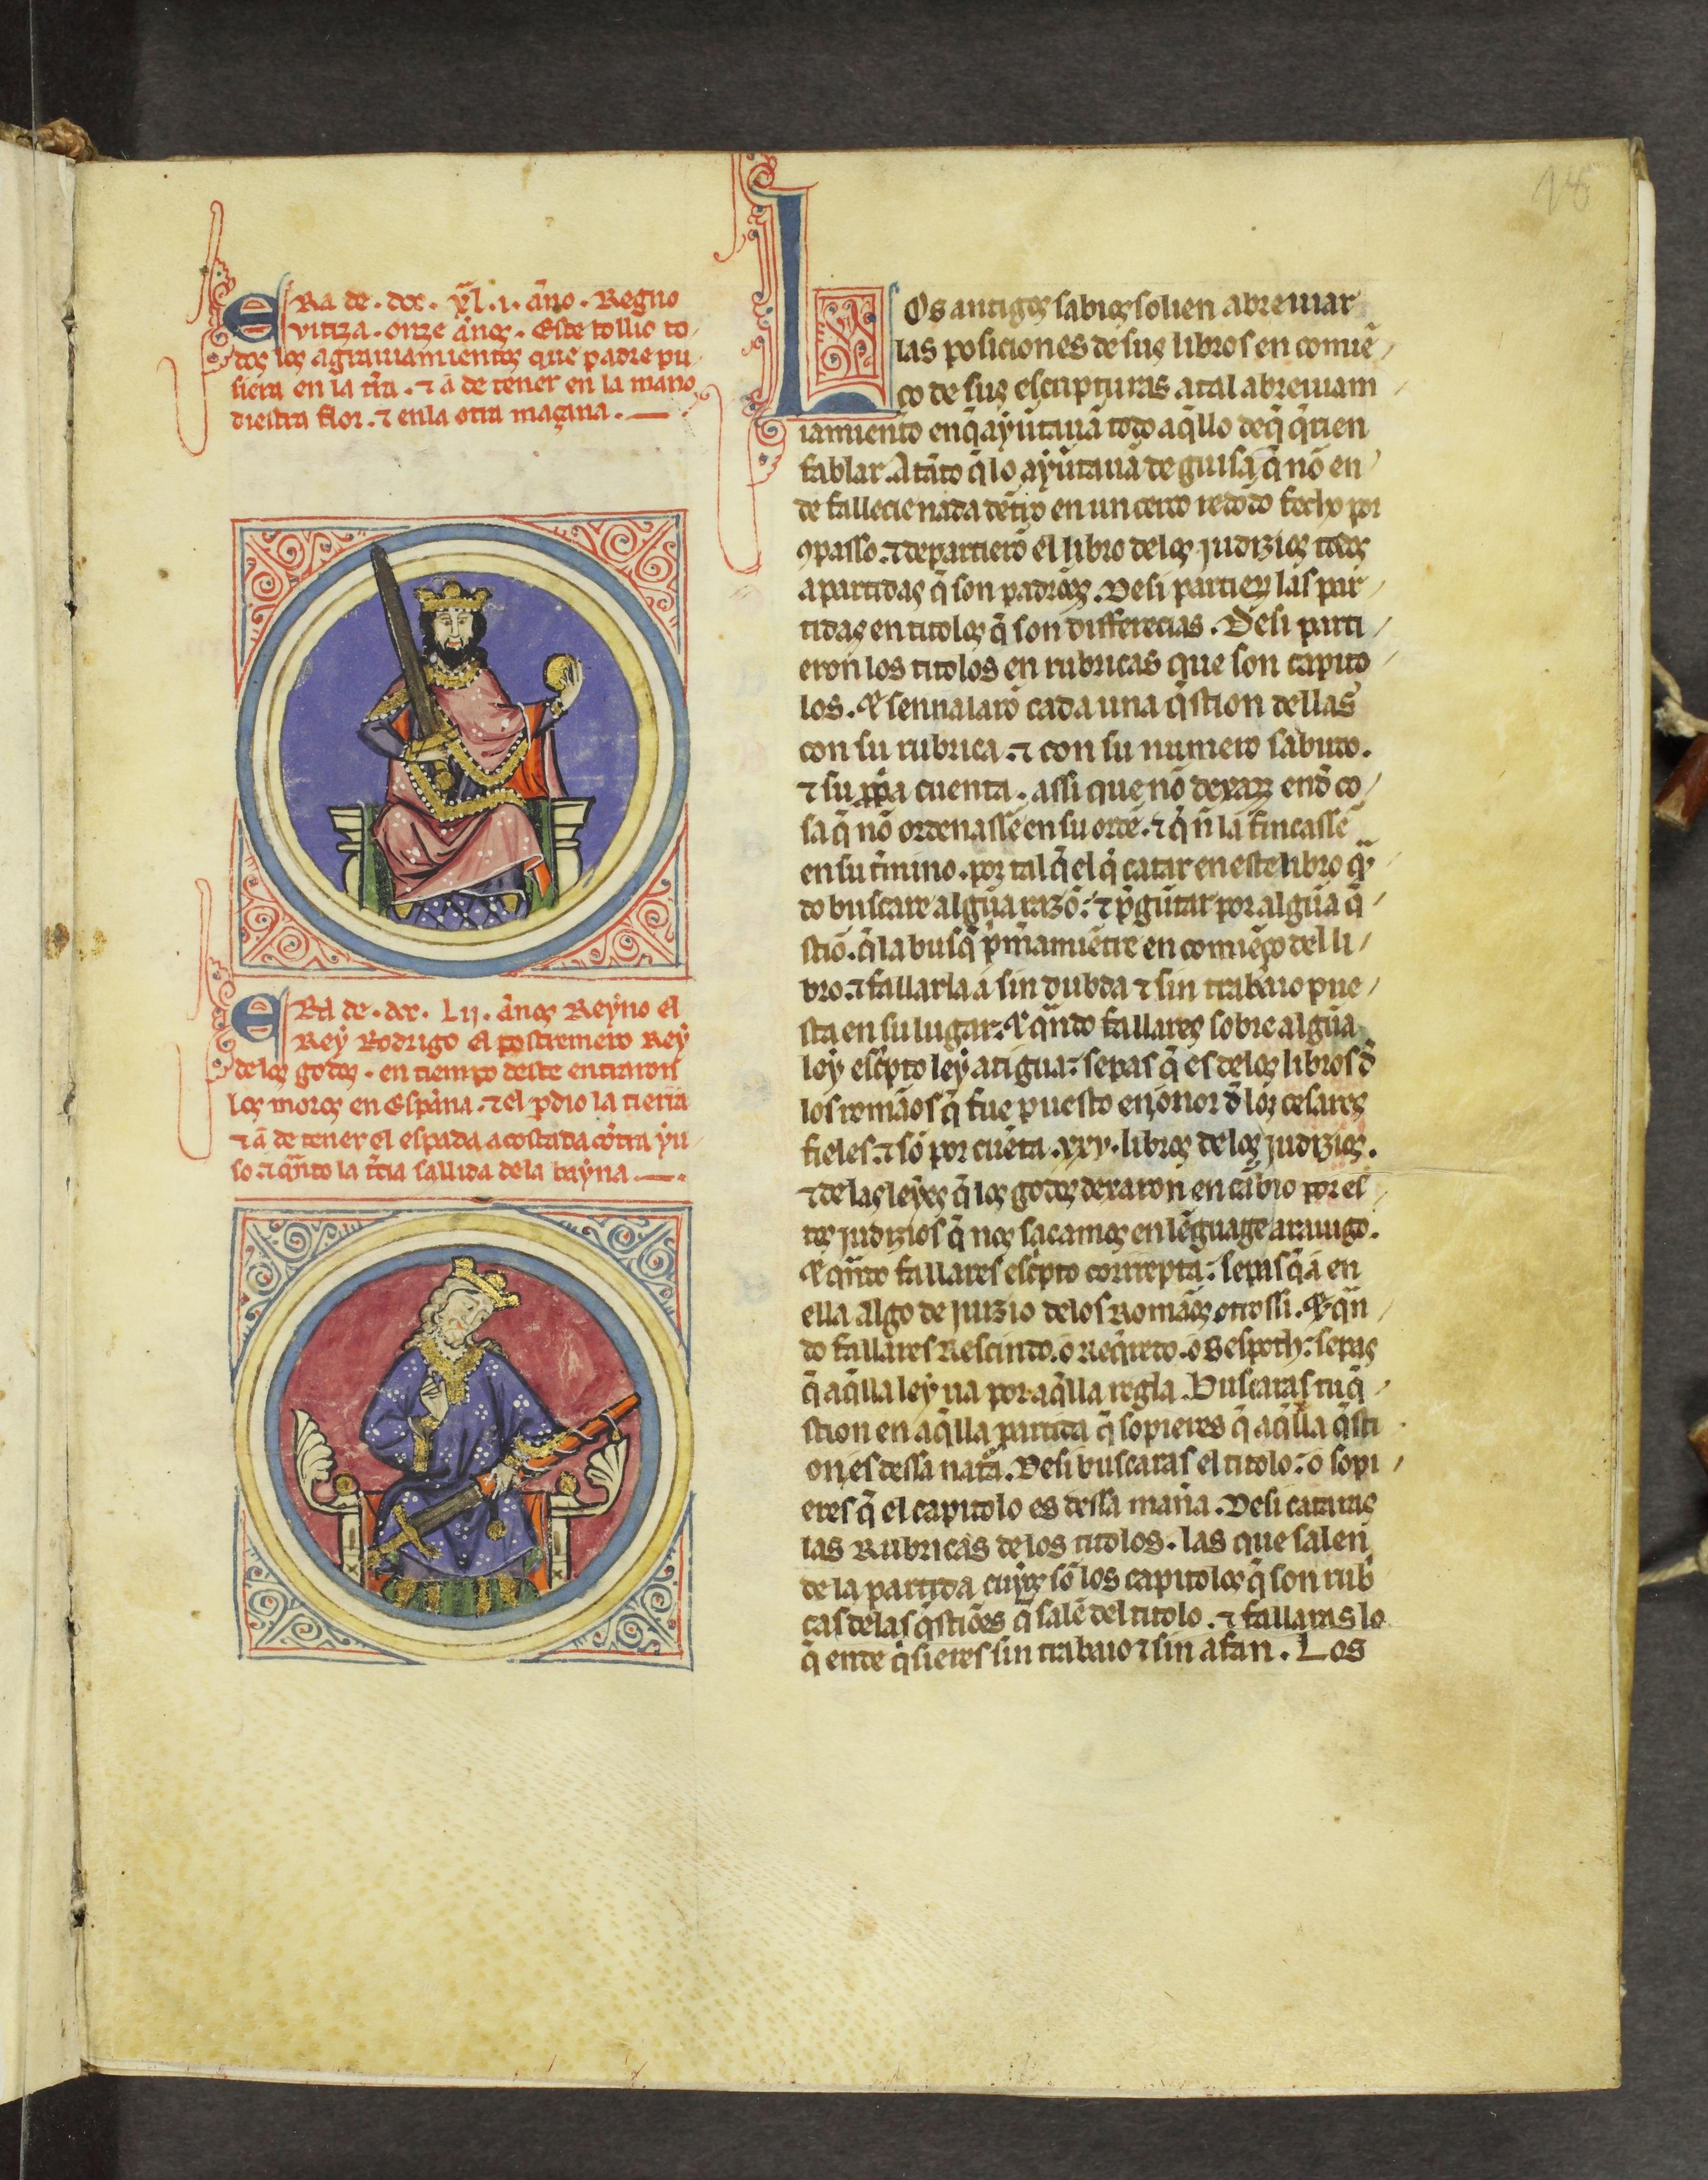 ERa de . dcc . xl . i . año . Regno
vitiza . onze años . Este tollio to
dos los agrauiamientos que padre pu
siera en la tr̃ra . ⁊ a de tener en la mano
diestra flor . ⁊ en la otra maçana .
ERa de . dcc . Lij . años Reyno el
Rey Rodrigo el postremero Rey
de los godos . en tiempo deste entraron
los moros en España . ⁊ el ꝑdio la tierra
⁊ a de tener el espada acostada cõtra yu
so . ⁊ qñto la tr̃cia sallida de la bayna
LOs antigos sabios solien abreuiar
las posiciones de sus libros en comiẽ
ço de sus escripturas a tal abreuiam
iamiento en q̃ ayũtauã todo aq̃llo de q̃ q̃rien
fablar . A tãto q̃ lo ayũtauã de guisa q̃ nõ en
de fallecie nada dẽtro en un cerco redõdo fecho por
ꝯpasso . ⁊ departierõ el libro de los judizios todos
a partidas q̃ son padrões . Desi partierõ las par
tidas en titolos q̃ son differẽcias . Desi parti
eron los titolos en rubricas que son capito
los . ⁊ sennalarõ cada una q̃stion dellas
con su rubrica . ⁊ con su numero sabuto .
⁊ su ꝓpia cuenta . assi que nõ dexarõ end̃ co
sa q̃ nõ ordenassẽ en su ordẽ . ⁊ q̃ ñ la fincassẽ
en su t̃mino . por tal q̃ el q̃ catar en este libro q̃n
do buscare algũa razõ : ⁊ p̃gũtar por algũa q̃
stiõ . q̃ la busq̃ p̃m̃amiẽtre en comiẽço del li
bro . ⁊ fallarla a sin dubda ⁊ sin trabaio pue
sta en su lugar . ⁊ qñdo fallares sobre algũa
ley esc̃pto ley ãtigua : sepas q̃ es de los libros d̃
los romãos q̃ fue puesto en onor d̃ los cesares
fieles . ⁊ sõ por cuẽta . xxv . libros de los judizios .
⁊ de las leyes q̃ los godos dexaron en cãbio por es
tos judizios q̃ nos sacamos en lẽguage arauigo .
⁊ qñdo fallares esc̃pto correpta : sepas q̃ a en
ella algo de juizio de los Romãos otrossi . ⁊ qñ
do fallares Rescindo . o Req̃reto . o Gespoth : sepas
q̃ aq̃lla ley ua por aq̃lla regla . Buscaras tu q̃
stion en aq̃lla partida q̃ sopieres q̃ aq̃lla q̃sti
on es dessa nat̃a . Desi buscaras el titolo : o sopi
eres q̃ el capitolo es dessa mañа . Desi cataras
las Rubricas de los titolos . las que salen
de la partida cuyos sõ los capitolos q̃ son rub̃
cas de las q̃stiões q̃ salẽ del titolo . ⁊ fallaras lo
q̃ ende q̃sieres sin trabaio ⁊ sin afan . Los